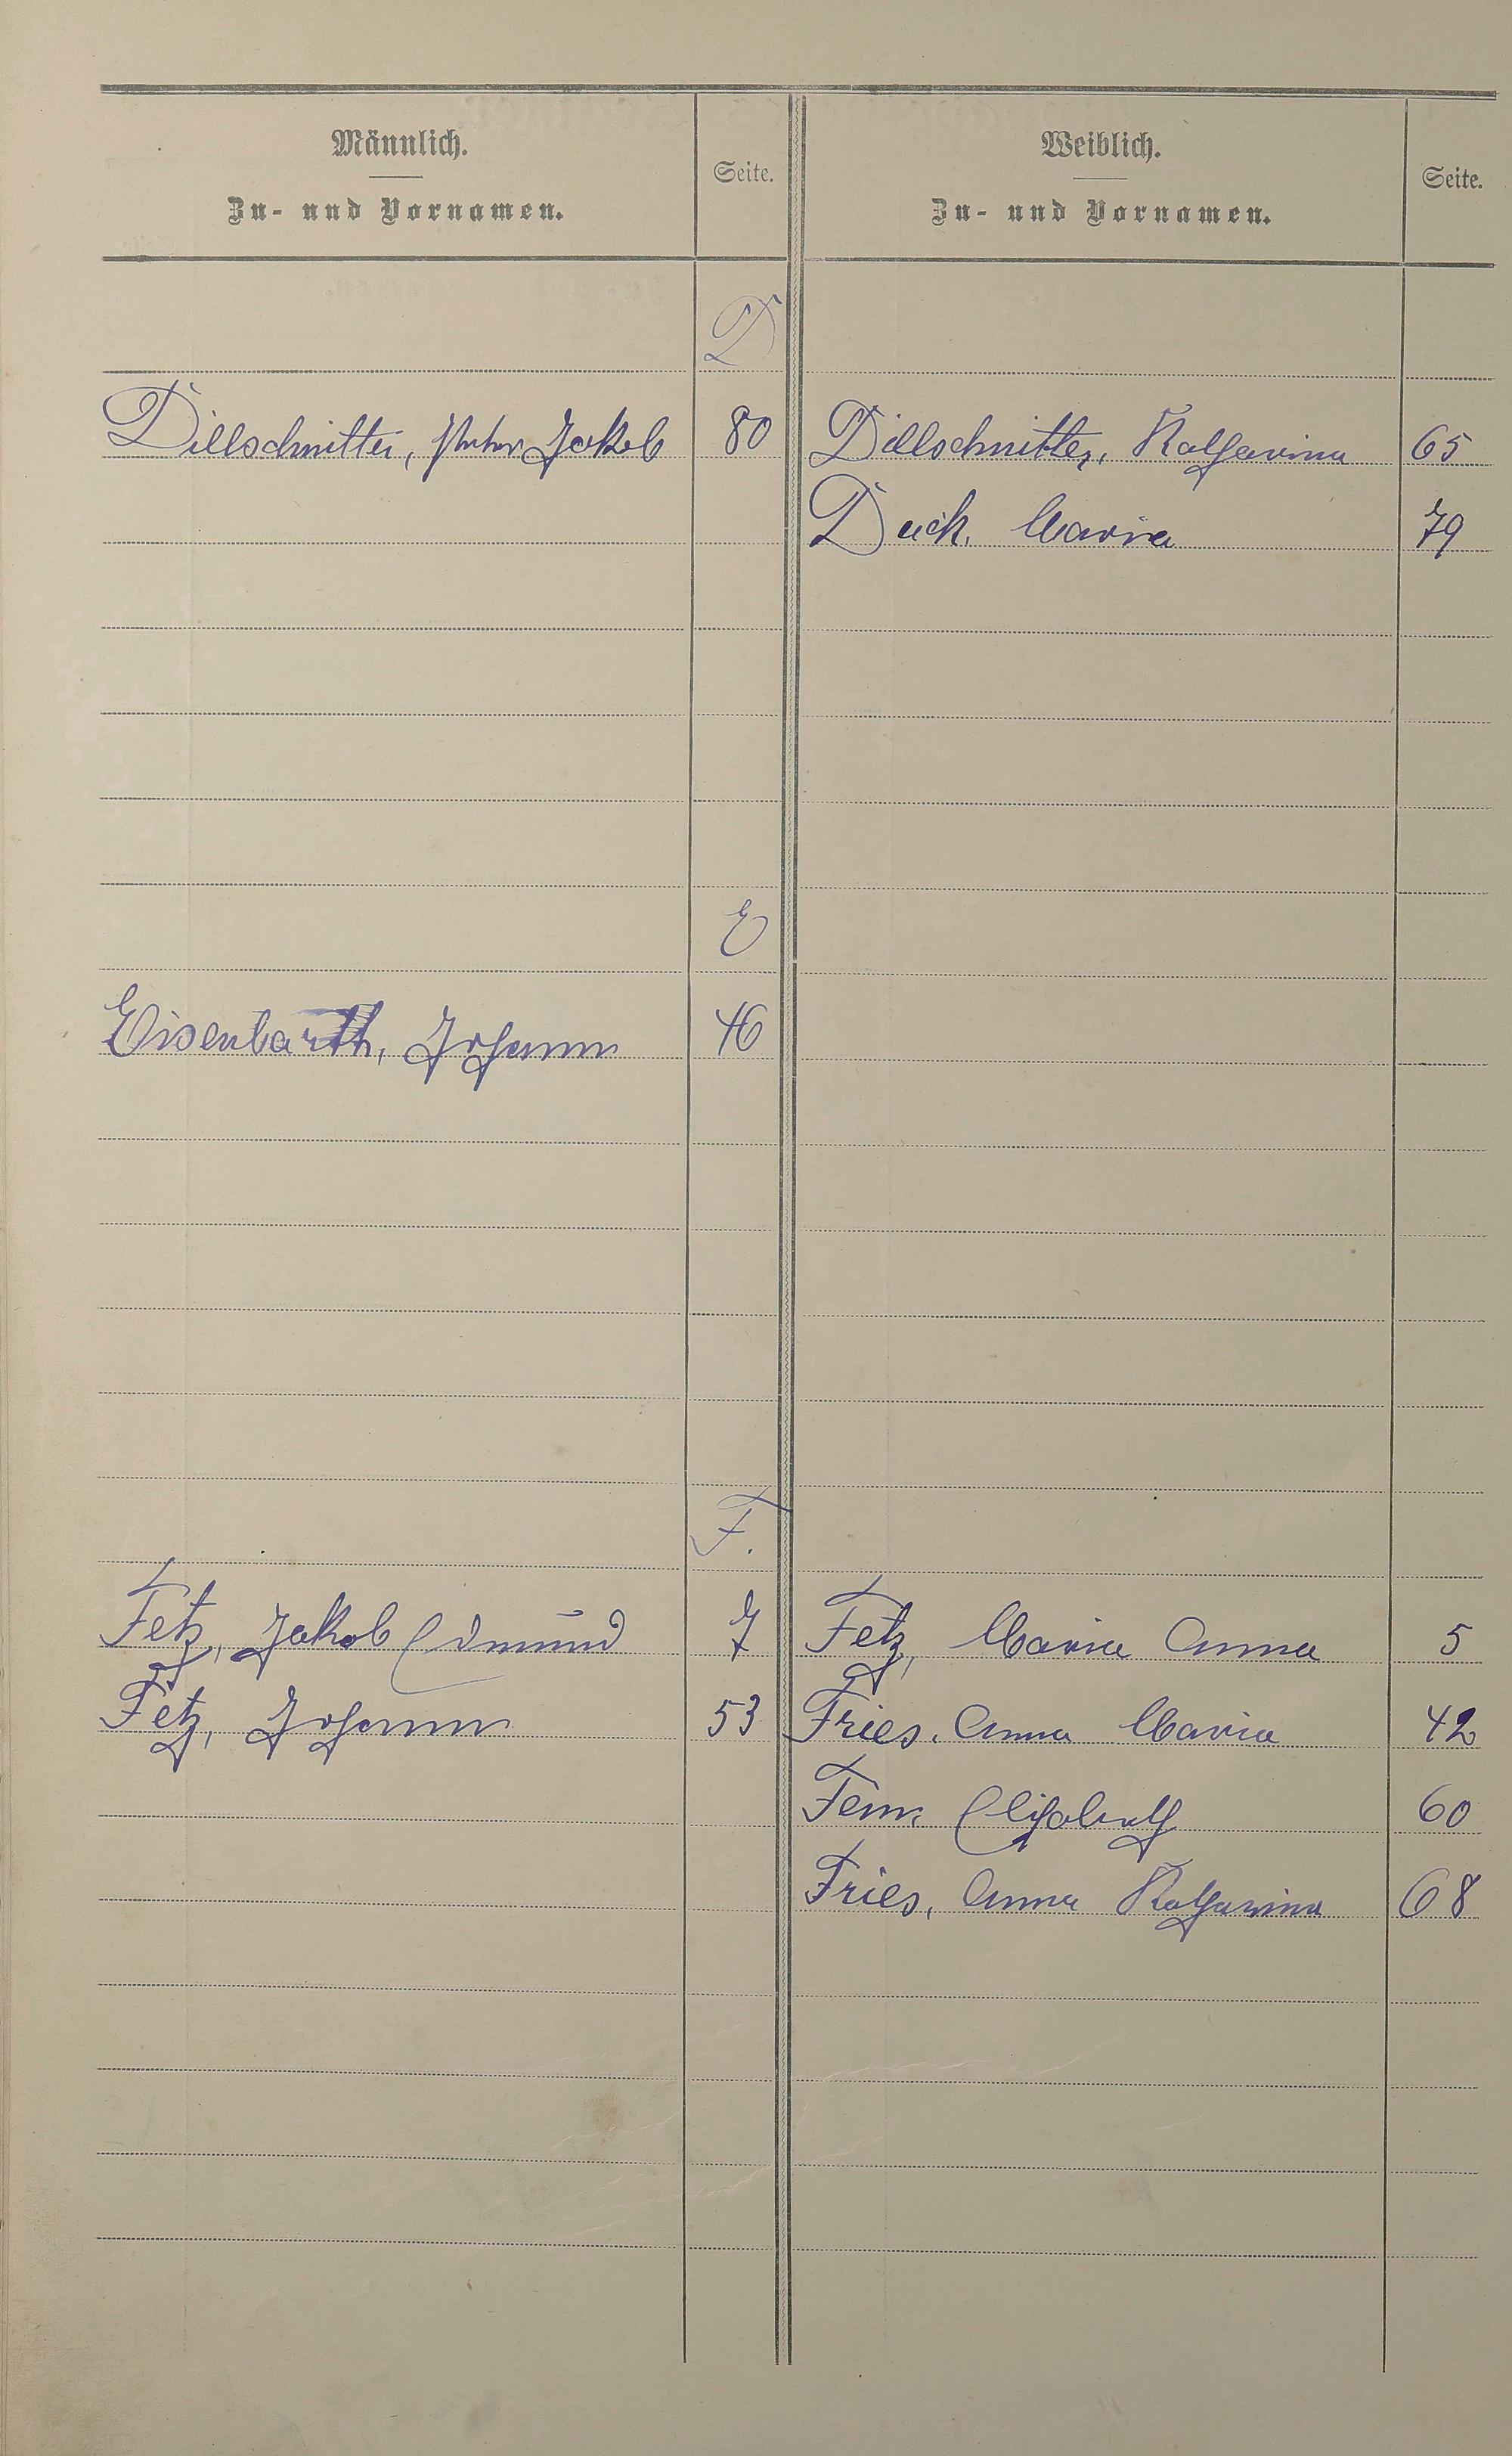 Männlich.
Zu- und Vornamen.
Seite.
Weiblich.
Zu- und Vornamen.
Seite.
D
Dillschnitter, Peter Jakob 80 Dillschnitter, Katharina 65
Duck, Maria 79
E
Eisenbarth, Johann 46
F.
Fetz, Jakob Edmund 7 Fetz, Maria Anna 5
Fetz, Johann 53 Fries, Anna Maria 42
Elisabeth 60
Fries, Anna Katharina 68